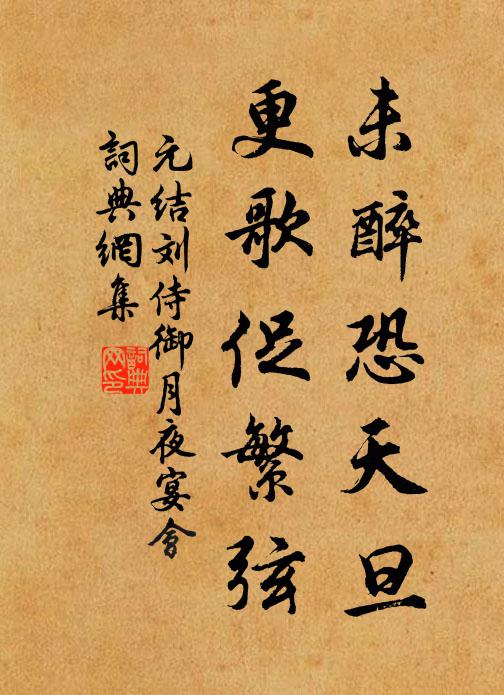 未醉恐天旦
更歌促繁弦
元结刘侍御月夜宴會
詞典網集
詞典网印